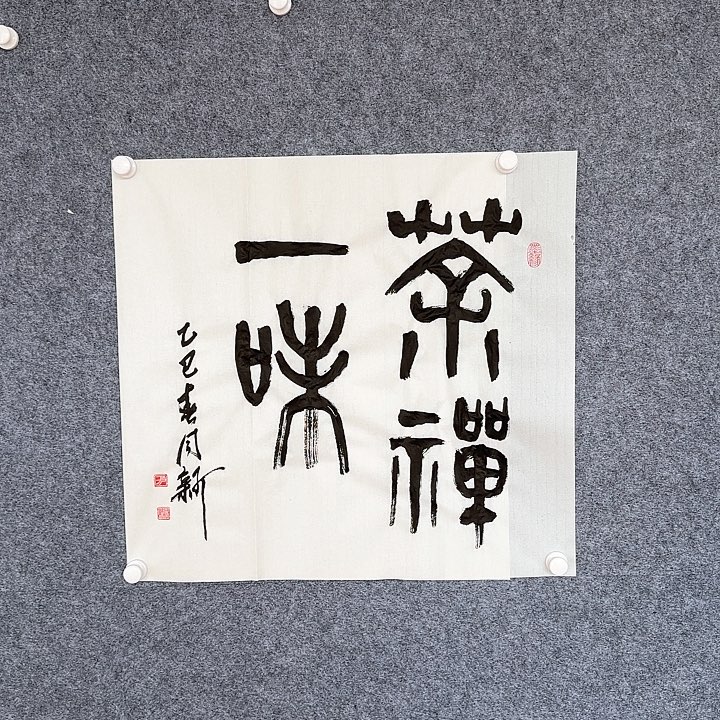 茶禪
一味
乙巳春周新